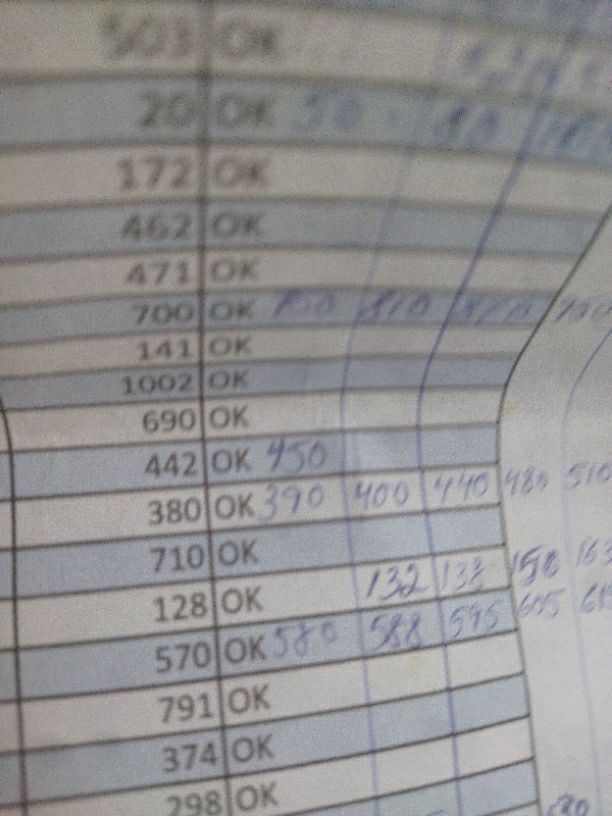 503 OK
20 OK 50
172 OK
462 OK
471 OK
700 OK
141 OK
1002 OK
690 OK
442 OK 450
380 OK 390 400 440 480 510
710 OK
128 OK 132 138 150 163
570 OK 580 588 595 605
791 OK
374 OK
298 OK